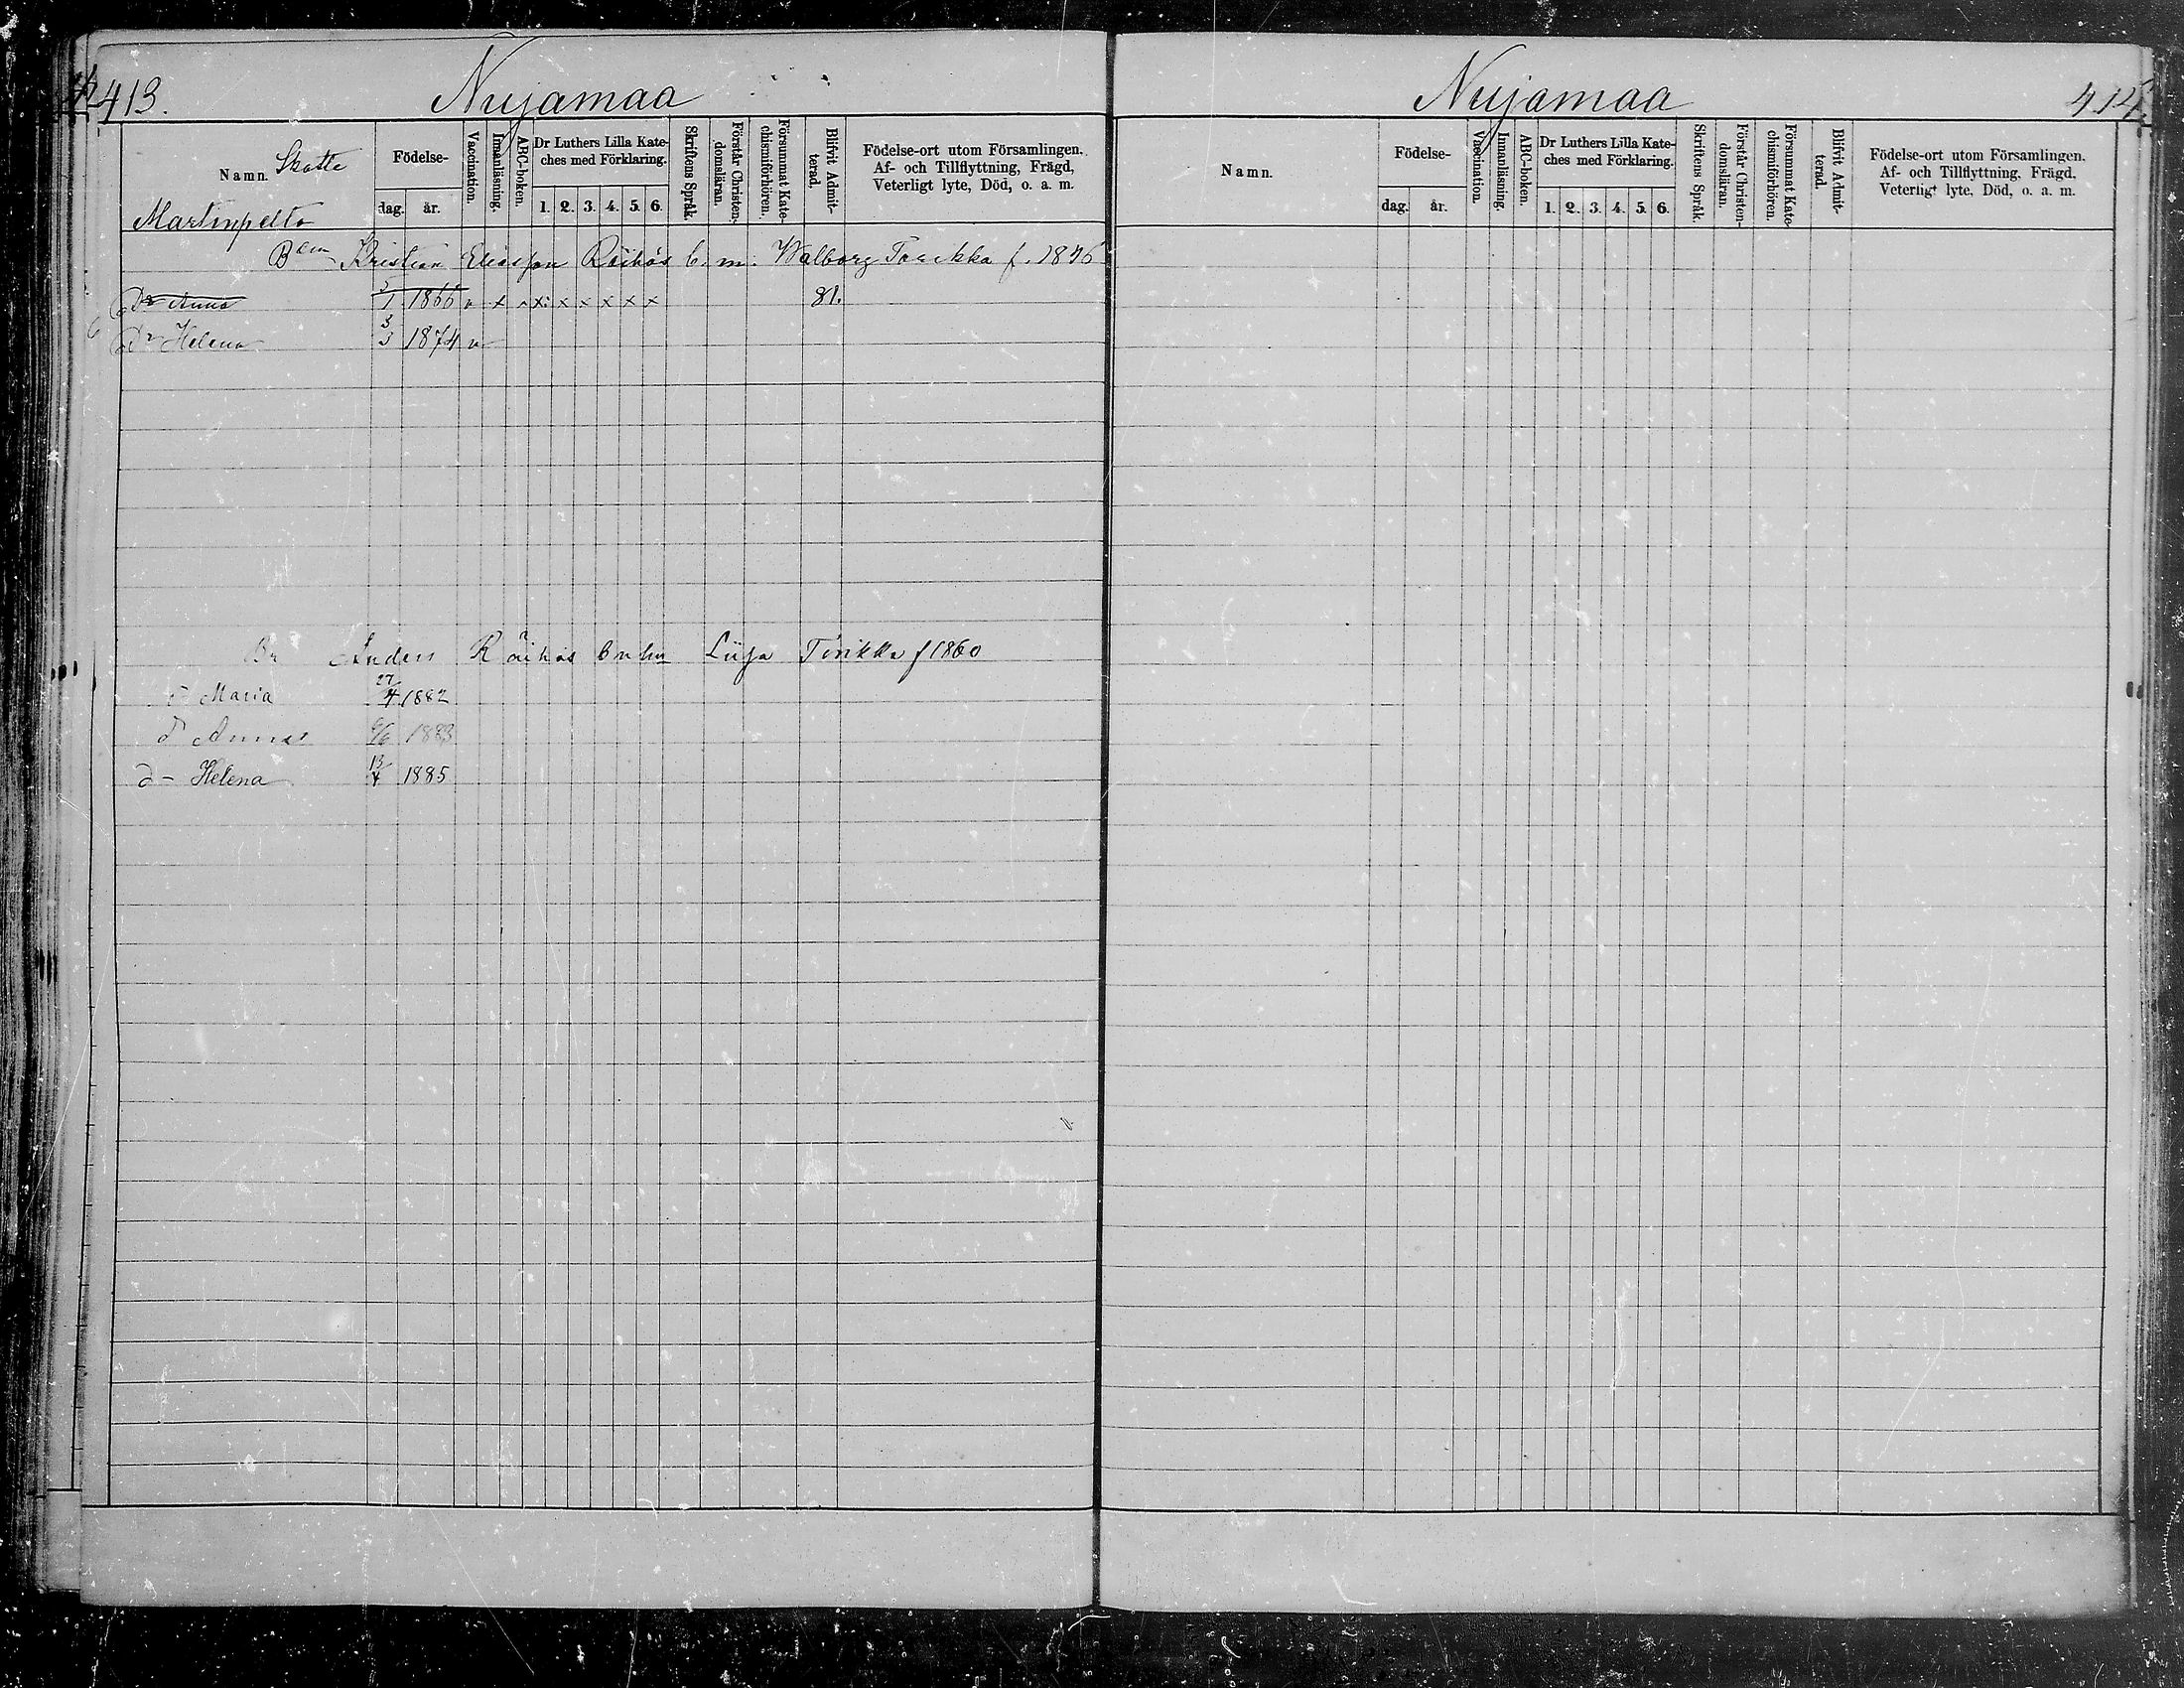 413. Nujamaa
Namn. Skatte
Martinpelto
Födelse-
dag. år.
Vaccination.
Innanläsning.
ABC-boken.
Dr Luthers Lilla Kate-
ches med Förklaring.
1. 2. 3. 4. 5. 6.
Skriftens Språk.
Förstår Christen-
domsläran.
Försummat Kate-
chismiförhören.
Blifvit Admit-
terad.
Födelse-ort utom Församlingen.
Af- och Tillflyttning, Frägd,
Veterligt lyte, Död, o. a. m.
Bdm Kristian Eliasson Räihäs b. m. Walborg Torikka f.
Dr Anna 1866 v x x x x x x x 81.
Dr Helena 3/3 1874 v
Anders Räihäs Liisa Torikka f 1860
d Maria 27/4 1882
d Anna 1883
d - Helena 1885
Nujamaa 414.
Namn.
Födelse-
dag. år.
Vaccination.
Innanläsning.
ABC-boken.
Dr Luthers Lilla Kate-
ches med Förklaring.
1. 2. 3. 4. 5. 6.
Skriftens Språk.
Förstår Christen-
domsläran.
Försummat Kate-
chismiförhören.
Blifvit Admit-
terad.
Födelse-ort utom Församlingen.
Af- och Tillflyttning, Frägd,
Veterligt lyte, Död, o. a. m.